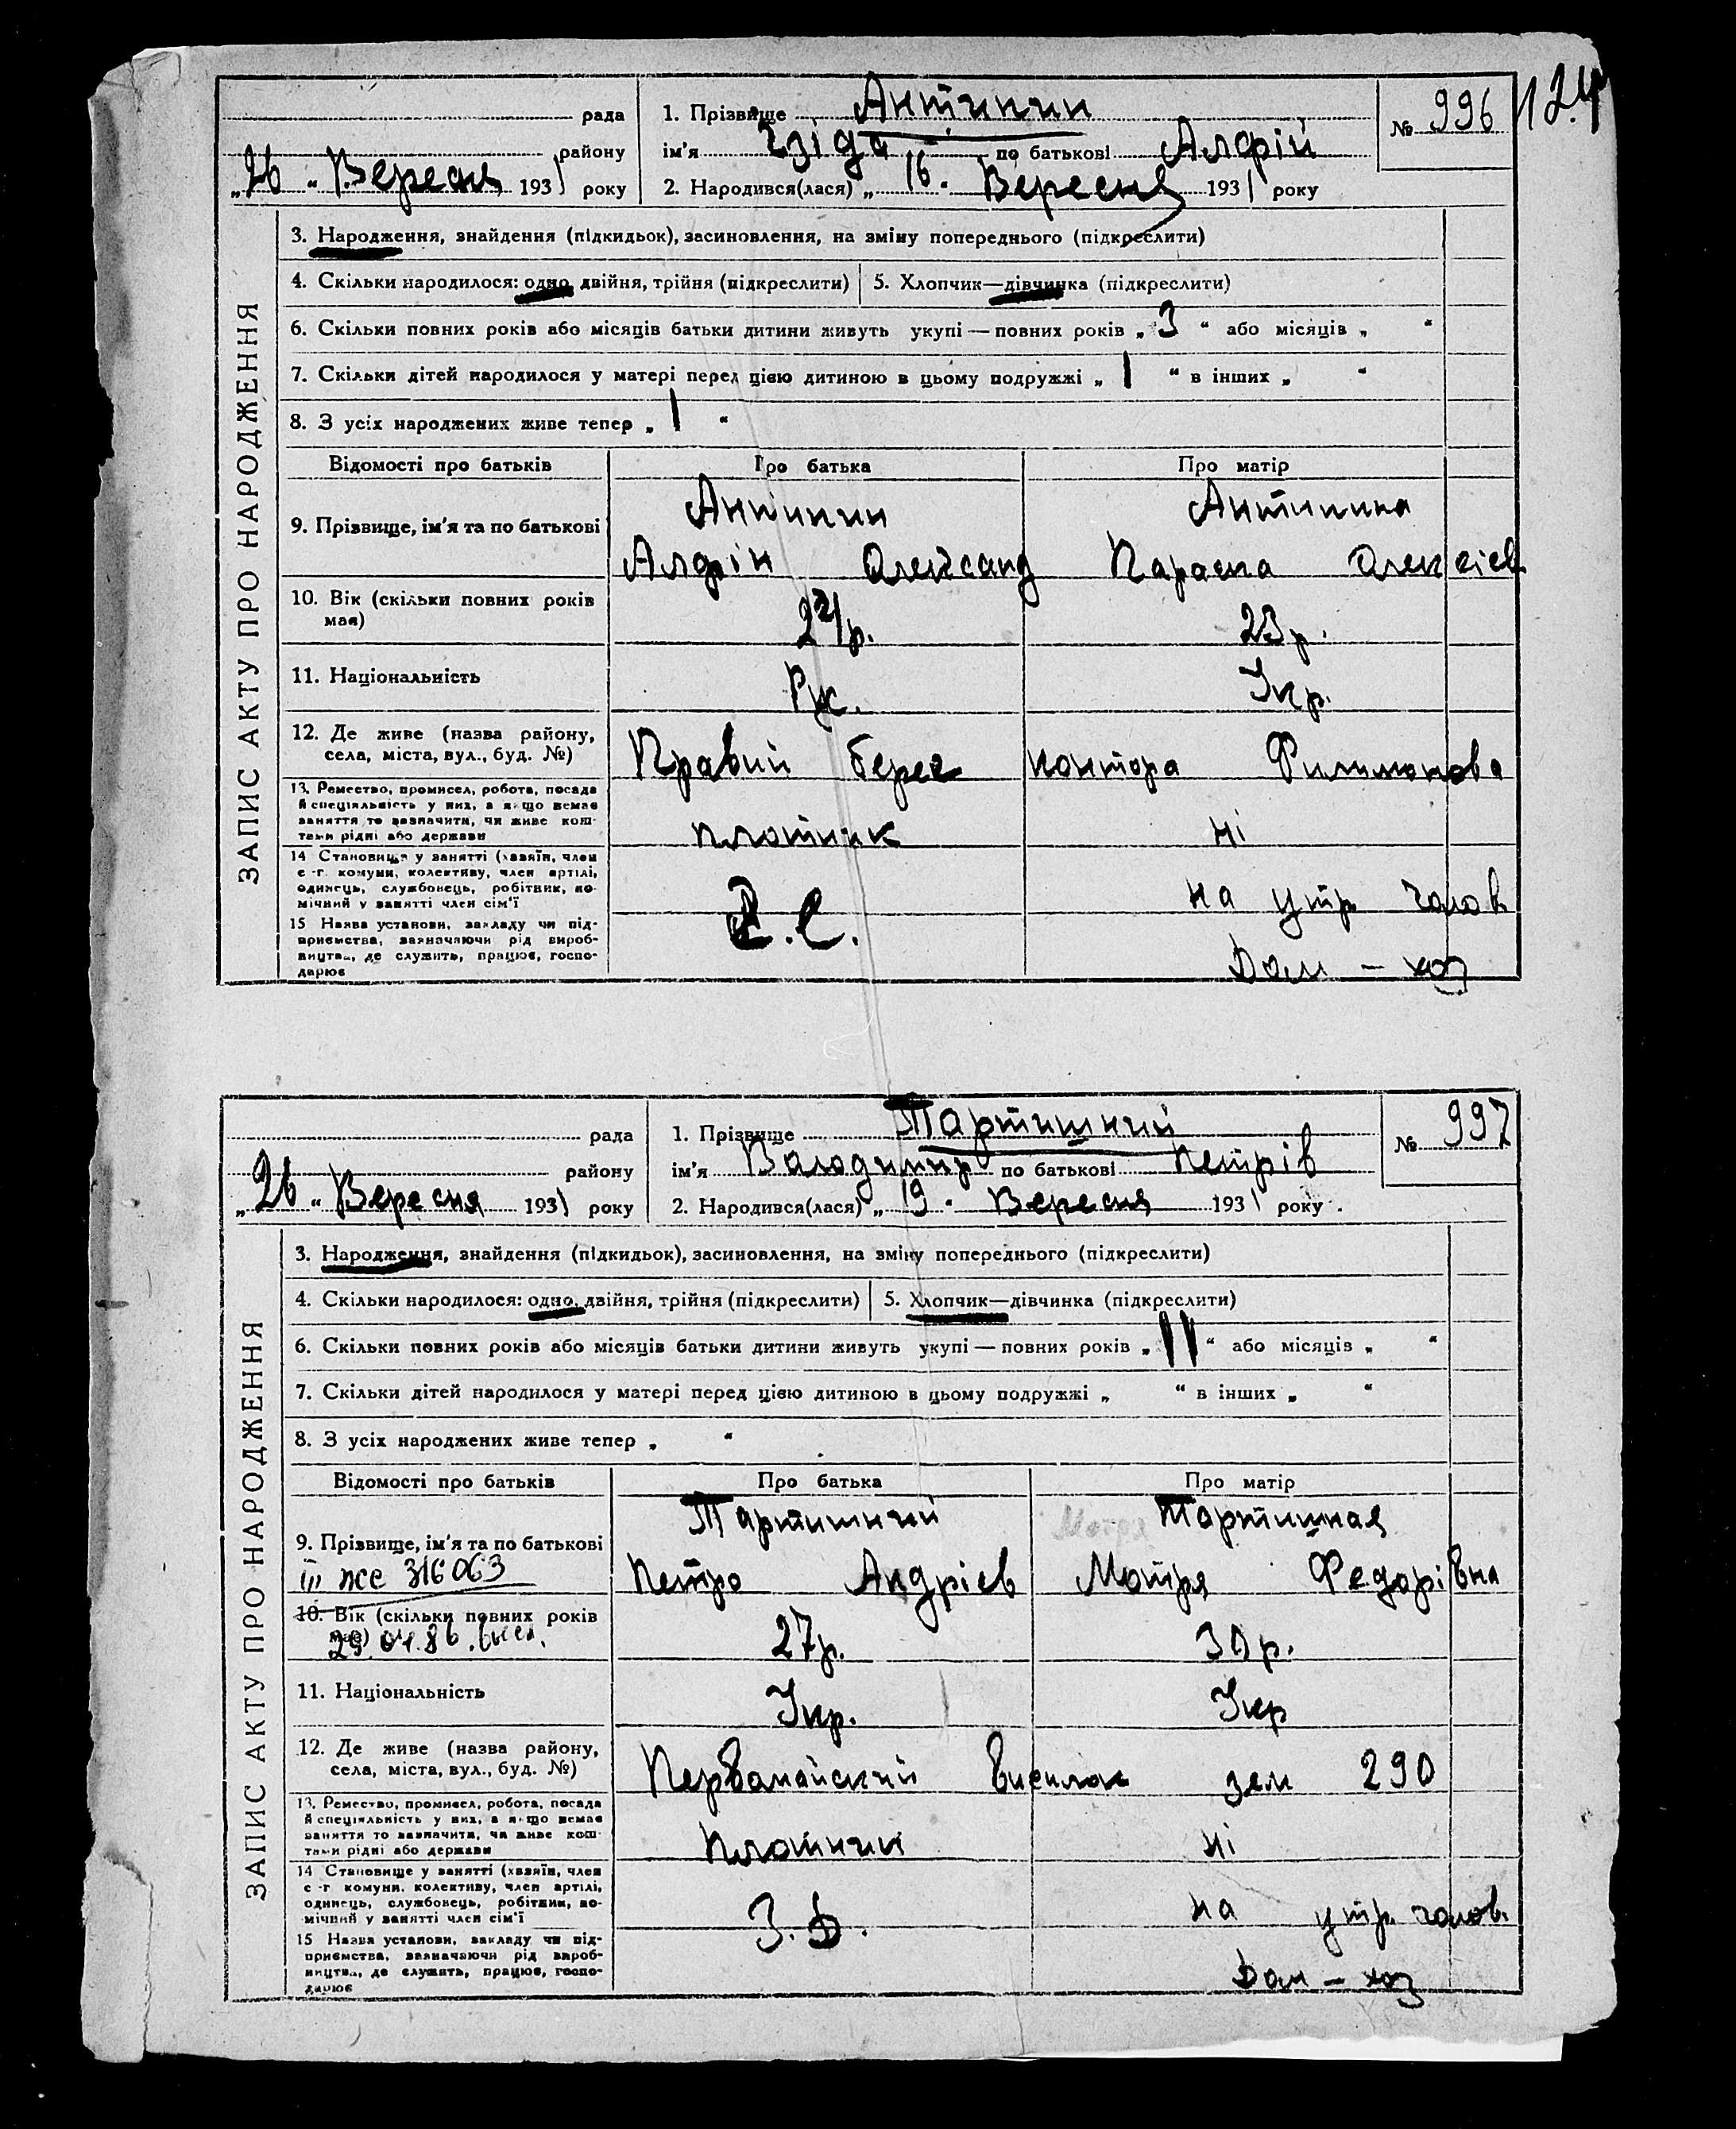 124
рада
1. Прізвище Антипин
№ 996
району
ім'я Ізіда по батькові Алфрій
„26" Вересня 1931 року
2. Народився(лася) „16" Вересня 1931 року
ЗАПИС АКТУ ПРО НАРОДЖЕННЯ
3. Народження, знайдення (підкидьок), засиновлення, на зміну попереднього (підкреслити)
4. Скільки народилося: одно, двійня, трійня (підкреслити)
5. Хлопчик—дівчинка (підкреслити)
6. Скільки повних років або місяців батьки дитини живуть укупі — повних років „3" або місяців „ "
7. Скільки дітей народилося у матері перед цією дитиною в цьому подружжі „1" в інших „ "
8. З усіх народжених живе тепер „1"
Відомості про батьків
Про батька
Про матір
9. Прізвище, ім'я та по батькові
Антипин
Антипина
Алфрій Олександ
Параска Олексієв
10. Вік (скільки повних років
має)
р.
23 р.
11. Національність
Рус.
Укр.
12. Де живе (назва району,
села, міста, вул., буд. №)
Правий берег контора Филимонова
13. Ремество, промисел, робота, посада
й спеціяльність у них, а якщо немає
заняття то зазначити, чи живе кош-
тами рідні або держави
плотник
ні
14 Становище у занятті (хазяїн, член
с.-г. комуни, колективу, член артілі,
одинець, службовець, робітник, по-
мічний у занятті член сім'ї
на утр. чолов.
15 Назва установи, закладу чи під-
приємства, зазначаючи рід вироб-
ництва, де служить, працює, госпо-
дарює
Р. С.
Дом – хоз
рада
1. Прізвище Тартишний
№ 997
району
ім'я Володимир по батькові Петрів
„26" Вересня 1931 року
2. Народився(лася) „19" Вересня 1931 року.
ЗАПИС АКТУ ПРО НАРОДЖЕННЯ
3. Народження, знайдення (підкидьок), засиновлення, на зміну попереднього (підкреслити)
4. Скільки народилося: одно, двійня, трійня (підкреслити)
5. Хлопчик—дівчинка (підкреслити)
6. Скільки повних років або місяців батьки дитини живуть укупі — повних років „11" або місяців „ "
7. Скільки дітей народилося у матері перед цією дитиною в цьому подружжі „ " в інших „ "
8. З усіх народжених живе тепер „ "
Відомості про батьків
Про батька
Про матір
9. Прізвище, ім'я та по батькові
Тартишний
Мотря Тартишная
III ЖС 316063
Петро Андрієв
Мотря Федорівна
10. Вік (скільки повних років
має)
29.01.86.
27р.
30 р.
11. Національність
Укр.
Укр
12. Де живе (назва району,
села, міста, вул., буд. №)
Первомайский Висилок зем 290
13. Ремество, промисел, робота, посада
й спеціяльність у них, а якщо немає
заняття то зазначити, чи живе кош-
тами рідні або держави
плотник
ні
14 Становище у занятті (хазяїн, член
с.-г. комуни, колективу, член артілі,
одинець, службовець, робітник, по-
мічний у занятті член сім'ї
на утр. чолов.
15 Назва установи, закладу чи під-
приємства, зазначаючи рід вироб-
ництва, де служить, працює, госпо-
дарює
З. Д.
Дом – хоз